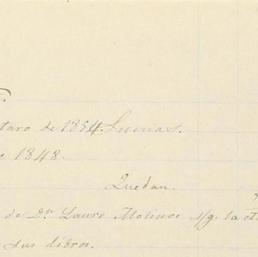 de 1854. Lunas.
1848.
Quedan.
de Dn. Lauro Molina s/g. la
sus libros.